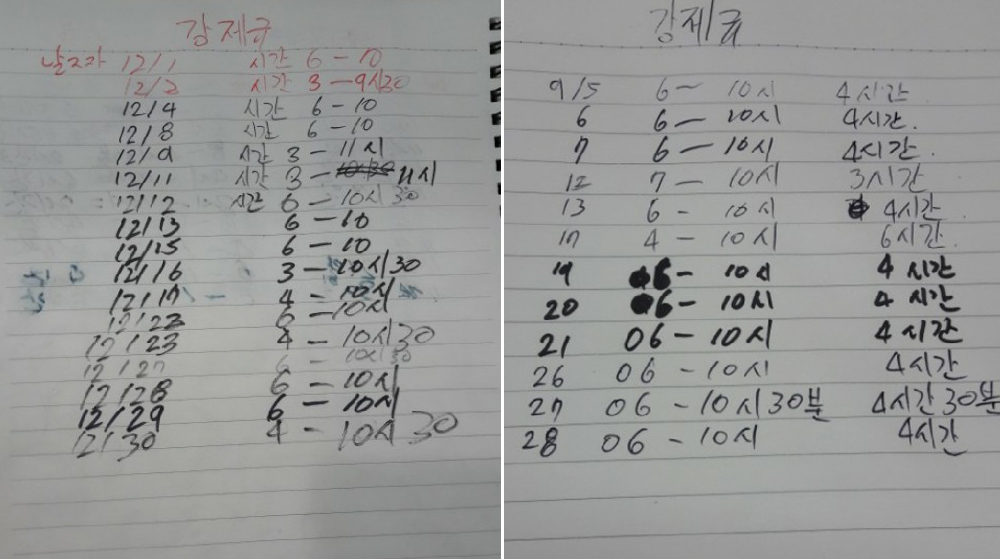 강제규
날짜 12/1 시간 6-10
12/2 시간 3-9시30
12/4 시간 6-10
12/8 시간 6-10
12/9 시간 3-11시
12/11 시간 3-11시
12/12 시간 6-10시30
12/13 6-10
12/15 6-10
12/16 3-10시30
12/17 4-10시
12/22 6-10시
12/23 4-10시30
12/27 6-10시30
12/28 6-10시
12/29 6-10시
12/30 4-10시30
강제규
9/5 6-10시 4시간
6 6-10시 4시간.
7 6-10시 4시간.
12 7-10시 3시간
13 6-10시 4시간
17 4-10시 6시간.
19 6-10시 4시간
20 6-10시 4시간
21 06-10시 4시간
26 06-10시 4시간
27 06-10시30분 4시간30분
28 06-10시 4시간